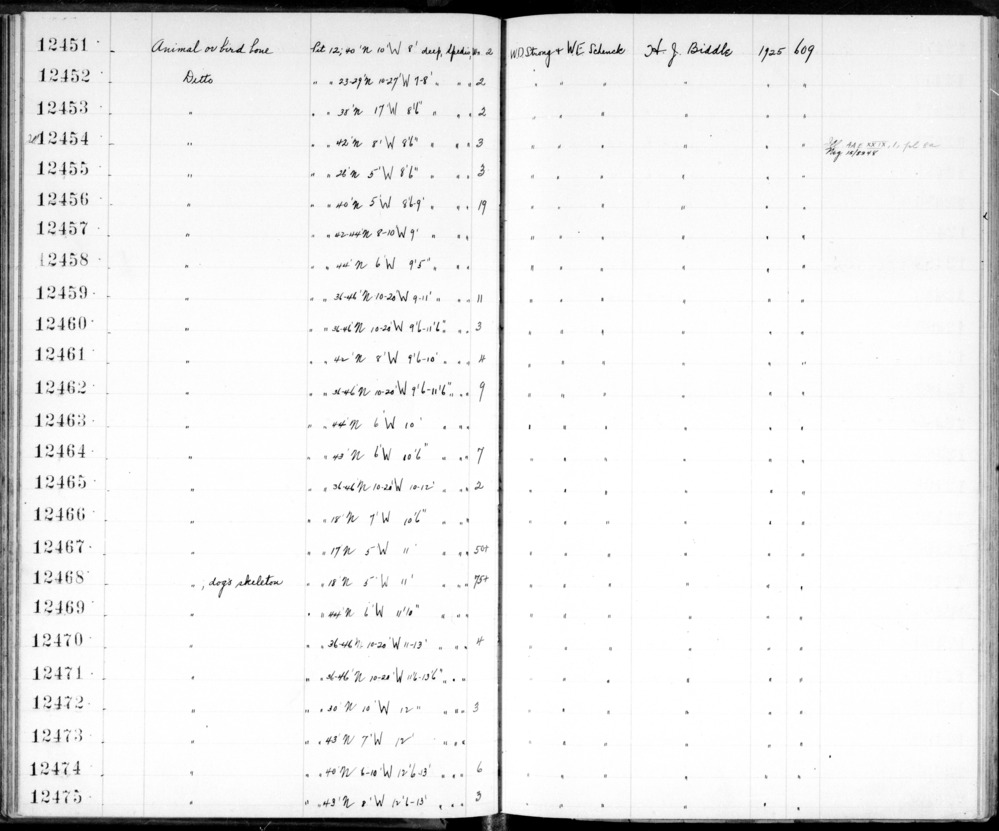 12451 Animal or bird bone Pit 12; 40' N 10' W 8' deep, No. 2 W.D. Strong & W.E. Schenck H. J. Biddle 1925 609
12452 Ditto " " 23-29' N 10-27' W 7-8' " " " 2 " " " " " "
12453 " " " 38' N 17' W 8'6" " " " 2 " " " " " "
12454 " " " 42' N 8' W 8'6" " " " 3 " " " " " "
12455 " " " 26' N 5' W 8'6" " " " 3 " " " " " "
12456 " " " 40' N 5' W 8'6-9' " " " 19 " " " " " "
12457 " " " 42-44' N 8-10' W 9' " " " " " " " " "
12458 " " " 44' N 6' W 9'5" " " " " " " " " "
12459 " " " 36-46' N 10-20' W 9-11' " " " 11 " " " " " "
12460 " " " 36-46' N 10-20' W 9'6-11'6" " " " 3 " " " " " "
12461 " " " 42' N 8' W 9'6-10' " " " 4 " " " " " "
12462 " " " 36-46' N 10-20' W 9'6-11'6" " " " 9 " " " " " "
12463 " " " 44' N 6' W 10' " " " " " " " " "
12464 " " " 43' N 6' W 10'6" " " " 7 " " " " " "
12465 " " " 36-46' N 10-20' W 10-12' " " " 2 " " " " " "
12466 " " " 18' N 7' W 10'6" " " " " " " " " "
12467 " " " 17 N 5' W 11' " " " 50+ " " " " " "
12468 ", dog's skeleton " " 18' N 5' W 11' " " " 75+ " " " " " "
12469 " " " 44' N 6' W 11'10" " " " " " " " " "
12470 " " " 36-46' N. 10-20' W 11-13' " " " 4 " " " " " "
12471 " " " 36-46' N 10-20' W 11'6-13'6" " " " " " " " " "
12472 " " " 30' N 10' W 12' " " " 3 " " " " " "
12473 " " " 43' N 7' W 12' " " " " " " " " "
12474 " " " 40' N 6-10' W 12'6-13' " " " 6 " " " " " "
12475 " " " 43' N 8' W 12'6-13' " " " 3 " " " " " "